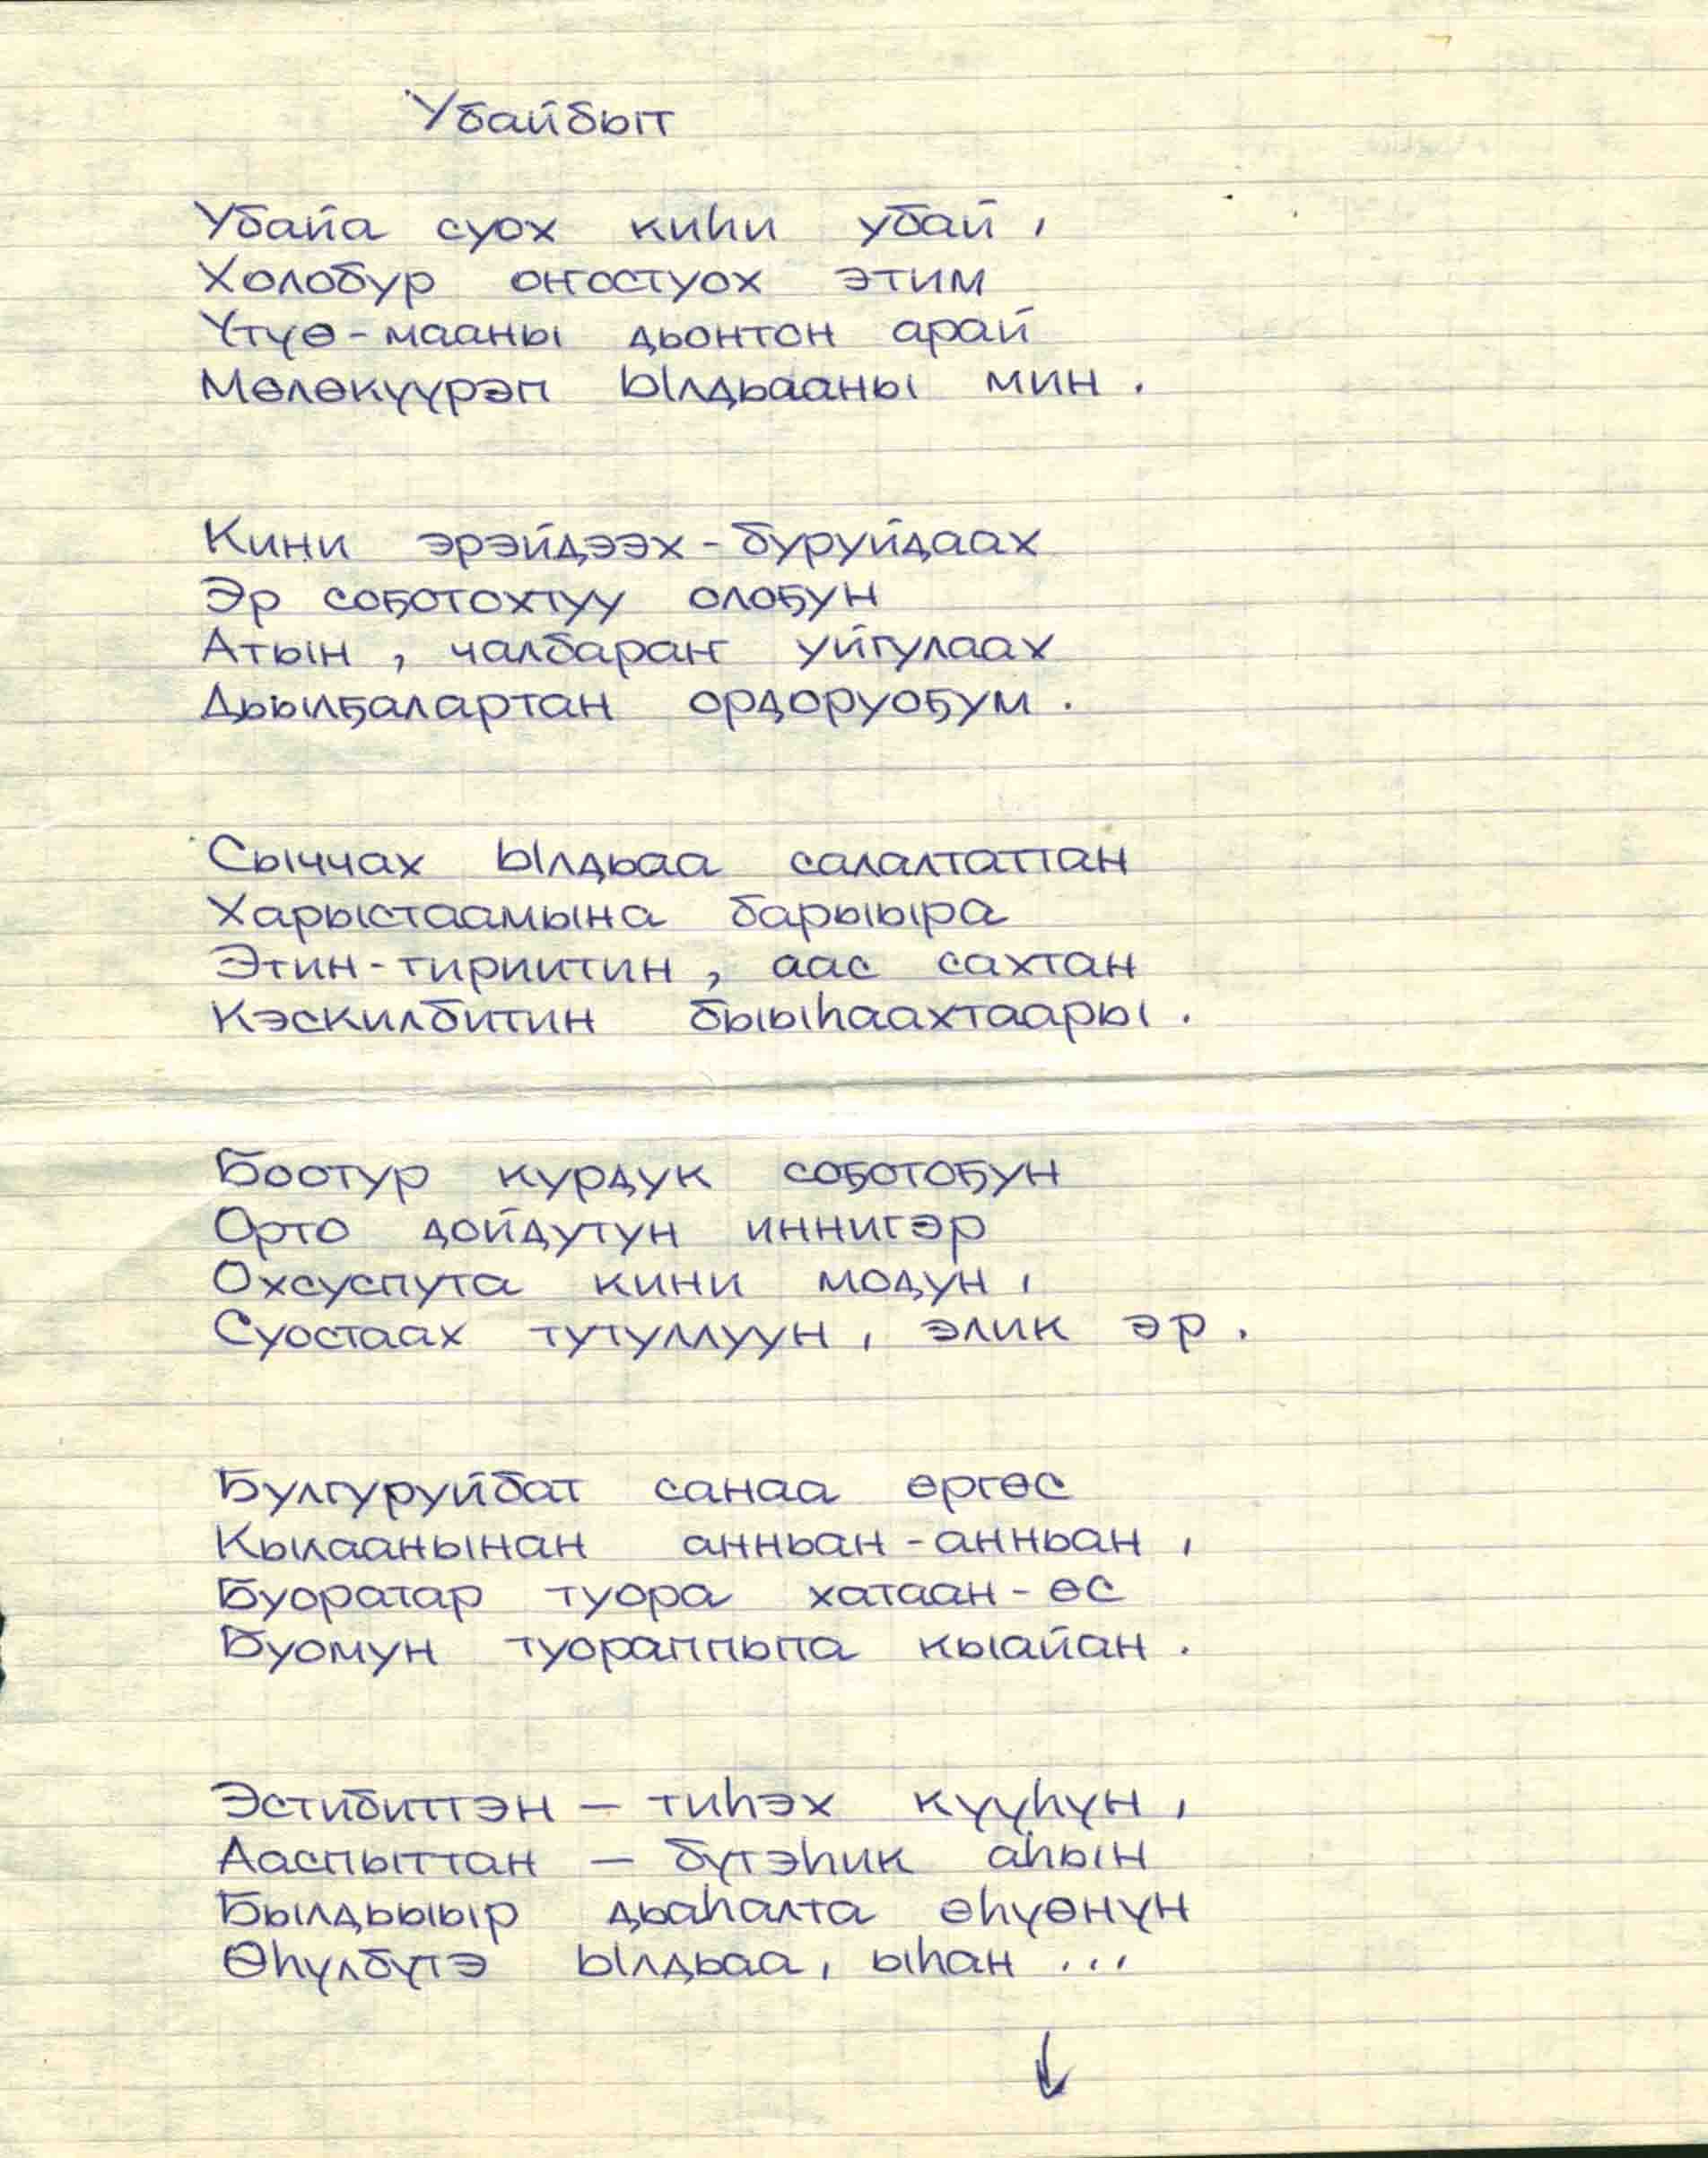 Убайбыт
Убайа суох киһи убай,
Холобур оҥостуох этим
Үтүө-мааны дьонтон арай
Мөлөкүүрэп Ылдьааны мин.
Кини эрэйдээх-буруйдаах
Эр соҕотохтуу олоҕун
Атын, чалбараҥ уйгулаах
Дьылҕалартан ордоруоҕум.
Сыччах Ылдьаа салалтаттан
Харыстаамына барыыра
Этин-тириитин, аас сахтан
Кэскилбитин быыһаахтаары.
Боотур курдук соҕотоҕун
Орто дойдутун иннигэр
Охсуспута кини модун,
Суостаах тутуллуун, элик эр.
Булгуруйбат санаа өргөс
Кылаанынан анньан-анньан,
Буоратар туора хатаан-өс
Буомун туораппыпа кыайан.
Эстибиттэн – тиһэх күүһүн,
Ааспыттан – бүтэһик аһын
Былдьыыр дьаһалта өһүөнүн
Өһүлбүтэ Ылдьаа, ыһан ...